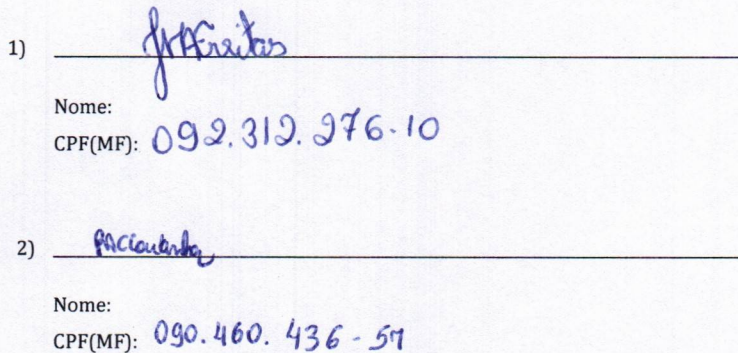 1) JAFreitas
Nome:
CPF(MF): 092.312.276-10
2)
Nome:
CPF(MF): 090.460.436-57